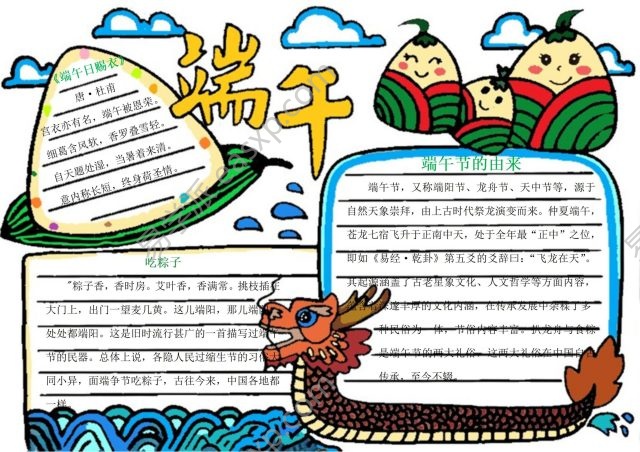 端午
《端午日赐衣》
唐·杜甫
宫衣亦有名，端午被恩荣。
细葛含风软，香罗叠雪轻。
自天题处湿，当暑着来清。
意内称长短，终身荷圣情。
端午节的由来
端午节，又称端阳节、龙舟节、天中节等，源于
自然天象崇拜，由上古时代祭龙演变而来。仲夏端午，
苍龙七宿飞升于正南中天，处于全年最“正中”之位，
即如《易经·乾卦》第五爻的爻辞曰：“飞龙在天”。
其起源涵盖了古老星象文化、人文哲学等方面内容，
蕴含着深邃丰厚的文化内涵，在传承发展中杂糅了多
种民俗为一体，节俗内容丰富。扒龙舟与食粽
是端午节的两大礼俗，这两大礼俗在中国自古
传承，至今不辍。
吃粽子
“粽子香，香时房。艾叶香，香满常。挑枝插在
大门上，出门一望麦几黄。这儿端阳，那儿端阳，
处处都端阳。这是旧时流行甚广的一首描写过端午
节的民器。总体上说，各隐人民过缩生节的习俗大
同小异，面端争节吃粽子，古往今来，中国各地都
一样。